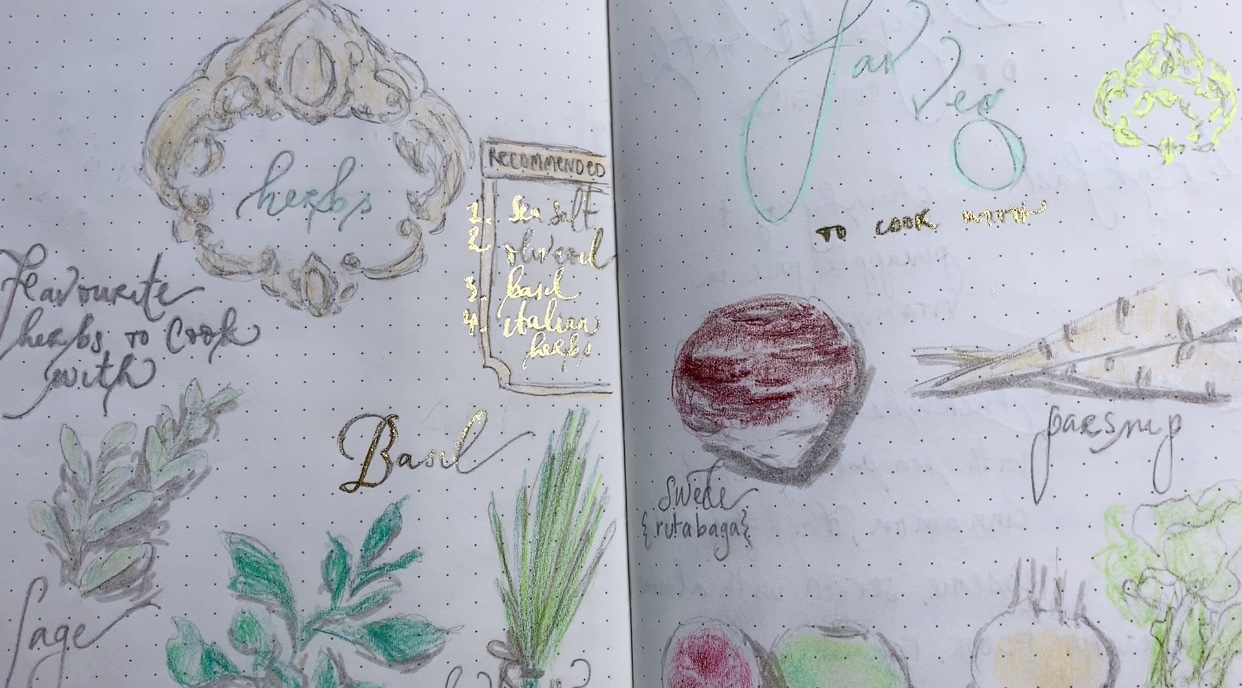 herbs
Favourite
herbs to cook
with
RECOMMENDED
1. Sea Salt
2. olive oil
3. basil
4. italian
herbs
Basil
Sage
fav
veg
TO COOK WITH
parsnip
Swede
{rutabaga}